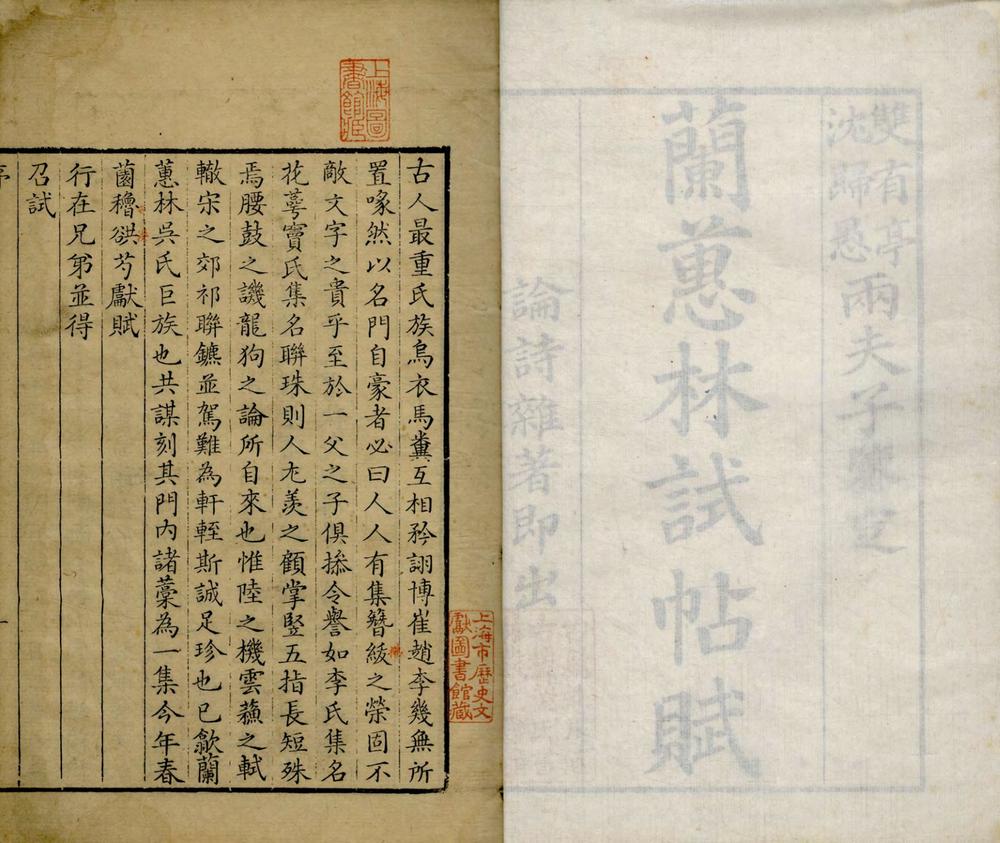 雙有亭
沈歸愚
兩夫子鑒定
蘭蕙林試帖賦
論詩雜著即出
上海圖書館藏
上海市歷史文獻圖書館藏
古人最重氏族烏衣馬糞互相矜詡博崔趙李幾無所
置喙然以名門自豪者必曰人人有集簪紱之榮固不
敵文字之貴乎至於一父之子俱摻令譽如李氏集名
花萼竇氏集名聯珠則人尤羨之顧掌豎五指長短殊
焉腰鼓之譏龍狗之論所自來也惟陸之機雲蘓之軾
轍宋之郊祁聯鑣並駕難為軒輊斯誠足珍也已歙蘭
蕙林吳氏巨族也共謀刻其門內諸藁為一集今年春
蘭穭谼芍獻賦
行在兄弟並得
召試
序
一